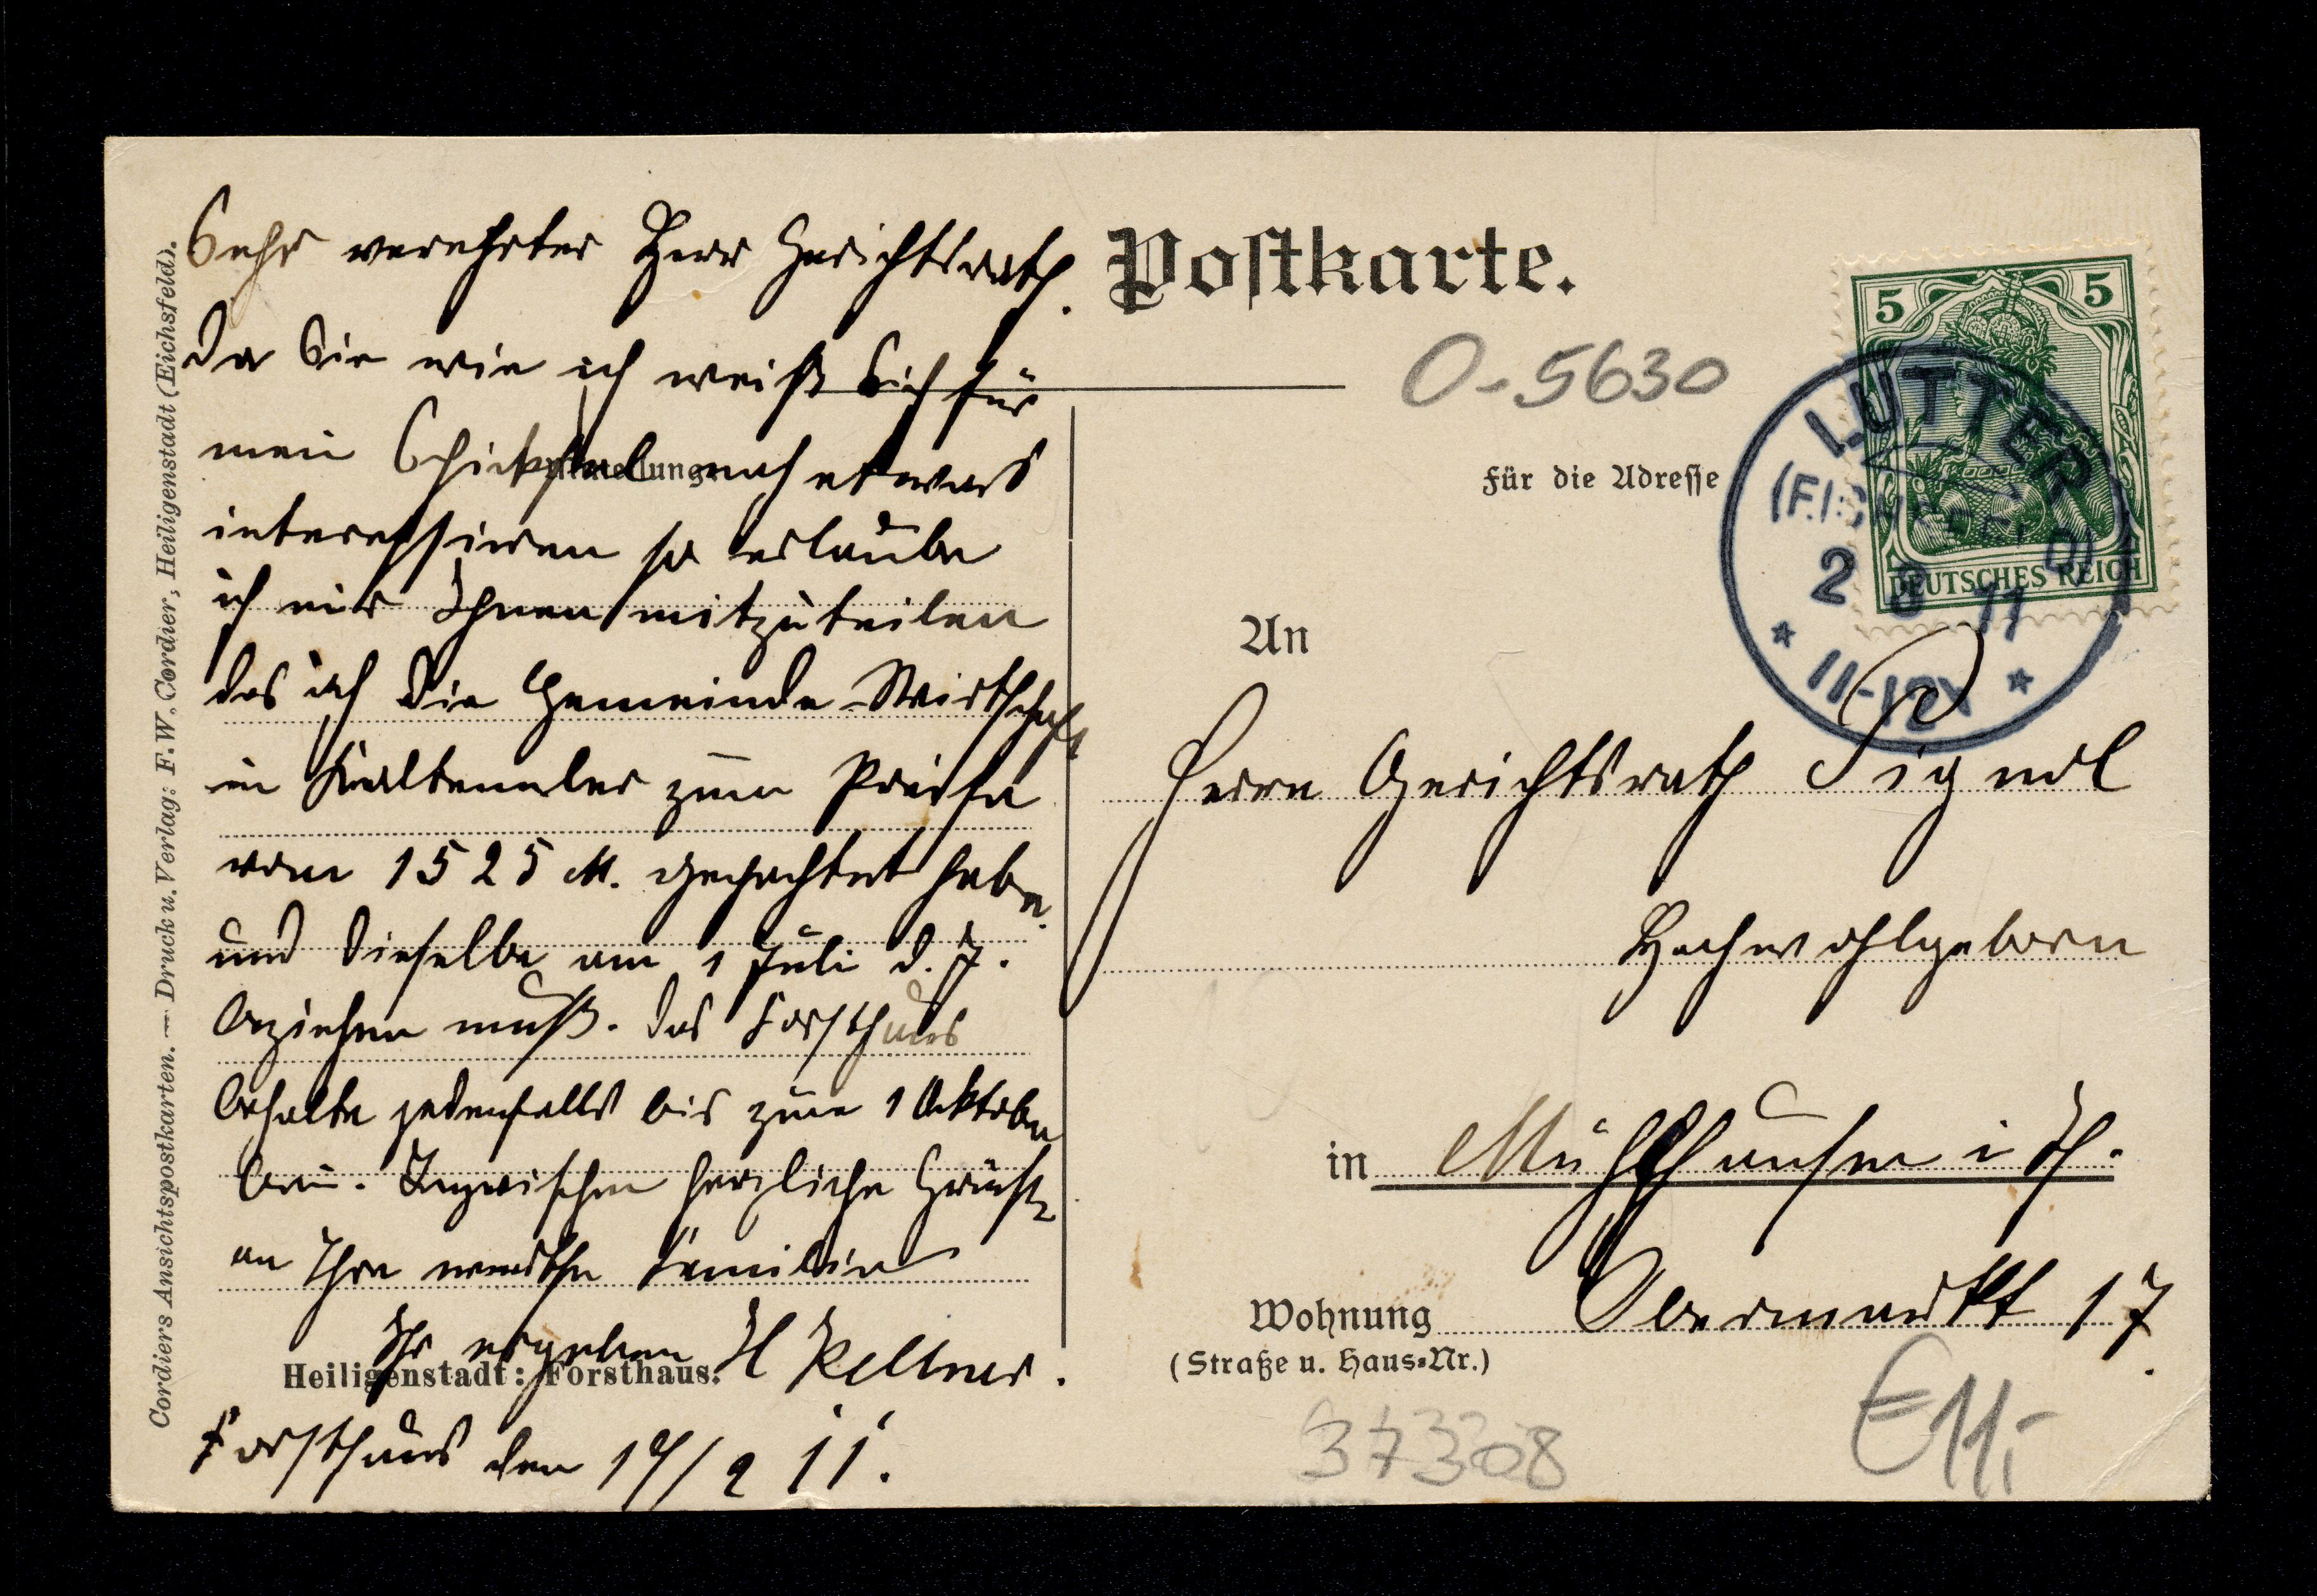 Sehr verehrter Herr Gerichtsrath.
Da Sie wie ich weiß Sich für
mein Schicksal noch etwas
interessiren so erlaube
ich mir Ihnen mitzuteilen
das ich die Gemeinde-Wirtschaft
in Kalteneber zum Preise
vom 1525 M. gepachtet habe.
und dieselbe am 1 Juli d. J.
beziehen muß. Das Forsthaus
behalte jedenfalls bis zum 1 Oktober
bei. Inzwischen herzliche Grüße
an Ihre werthe Familie
Ihr ergeben H Kellner.
Forsthaus den 19/2 11.
Mitteilungen
Heiligenstadt: Forsthaus.
Cordiers Ansichtspostkarten. — Druck u. Verlag: F. W. Cordier, Heiligenstadt (Eichsfeld).
Postkarte.
O-5630
Für die Adresse
5 5
DEUTSCHES REICH
LUTTER
(EICHSFELD)
2 11
* 11-12V *
An
Herrn Gerichtsrath
Hochwohlgeborn
in Mühlhausen i Th.
Wohnung Obermarkt 17.
(Straße u. Haus-Nr.)
37308
€11,-